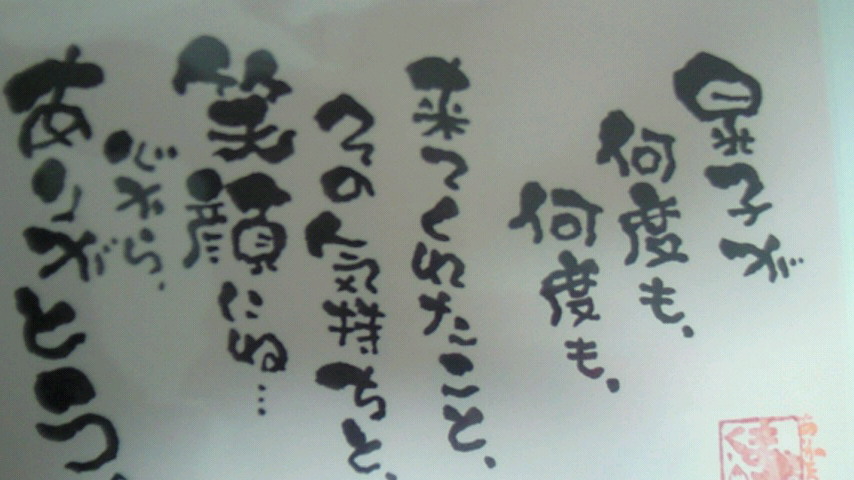 子が
何度も、
何度も、
来てくれたこと、
その気持ちと、
笑顔にね…
心から、
ありがとう、